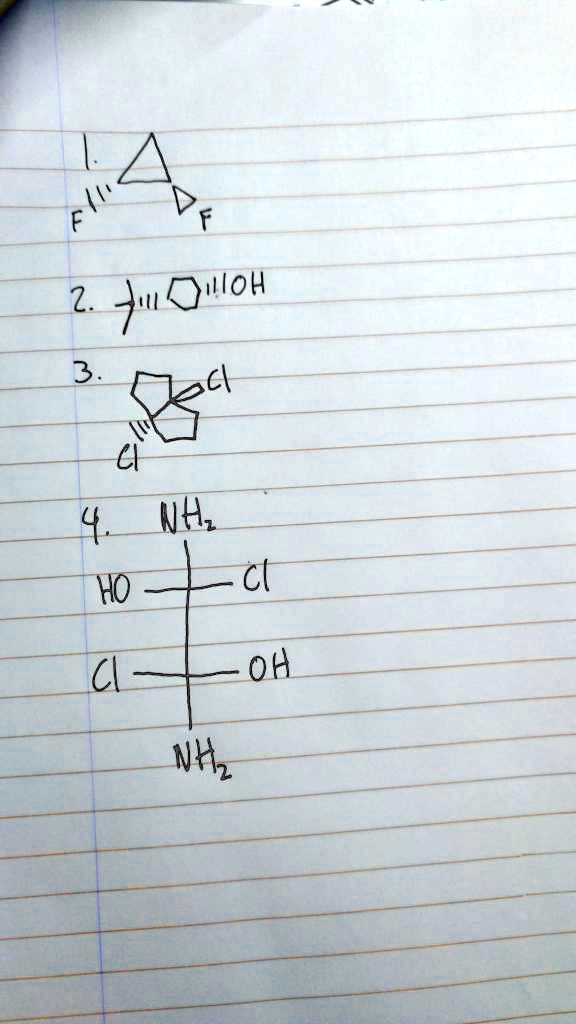 1.
F F
2. OH
3. Cl
Cl
4. NH₂
HO Cl
Cl OH
NH₂